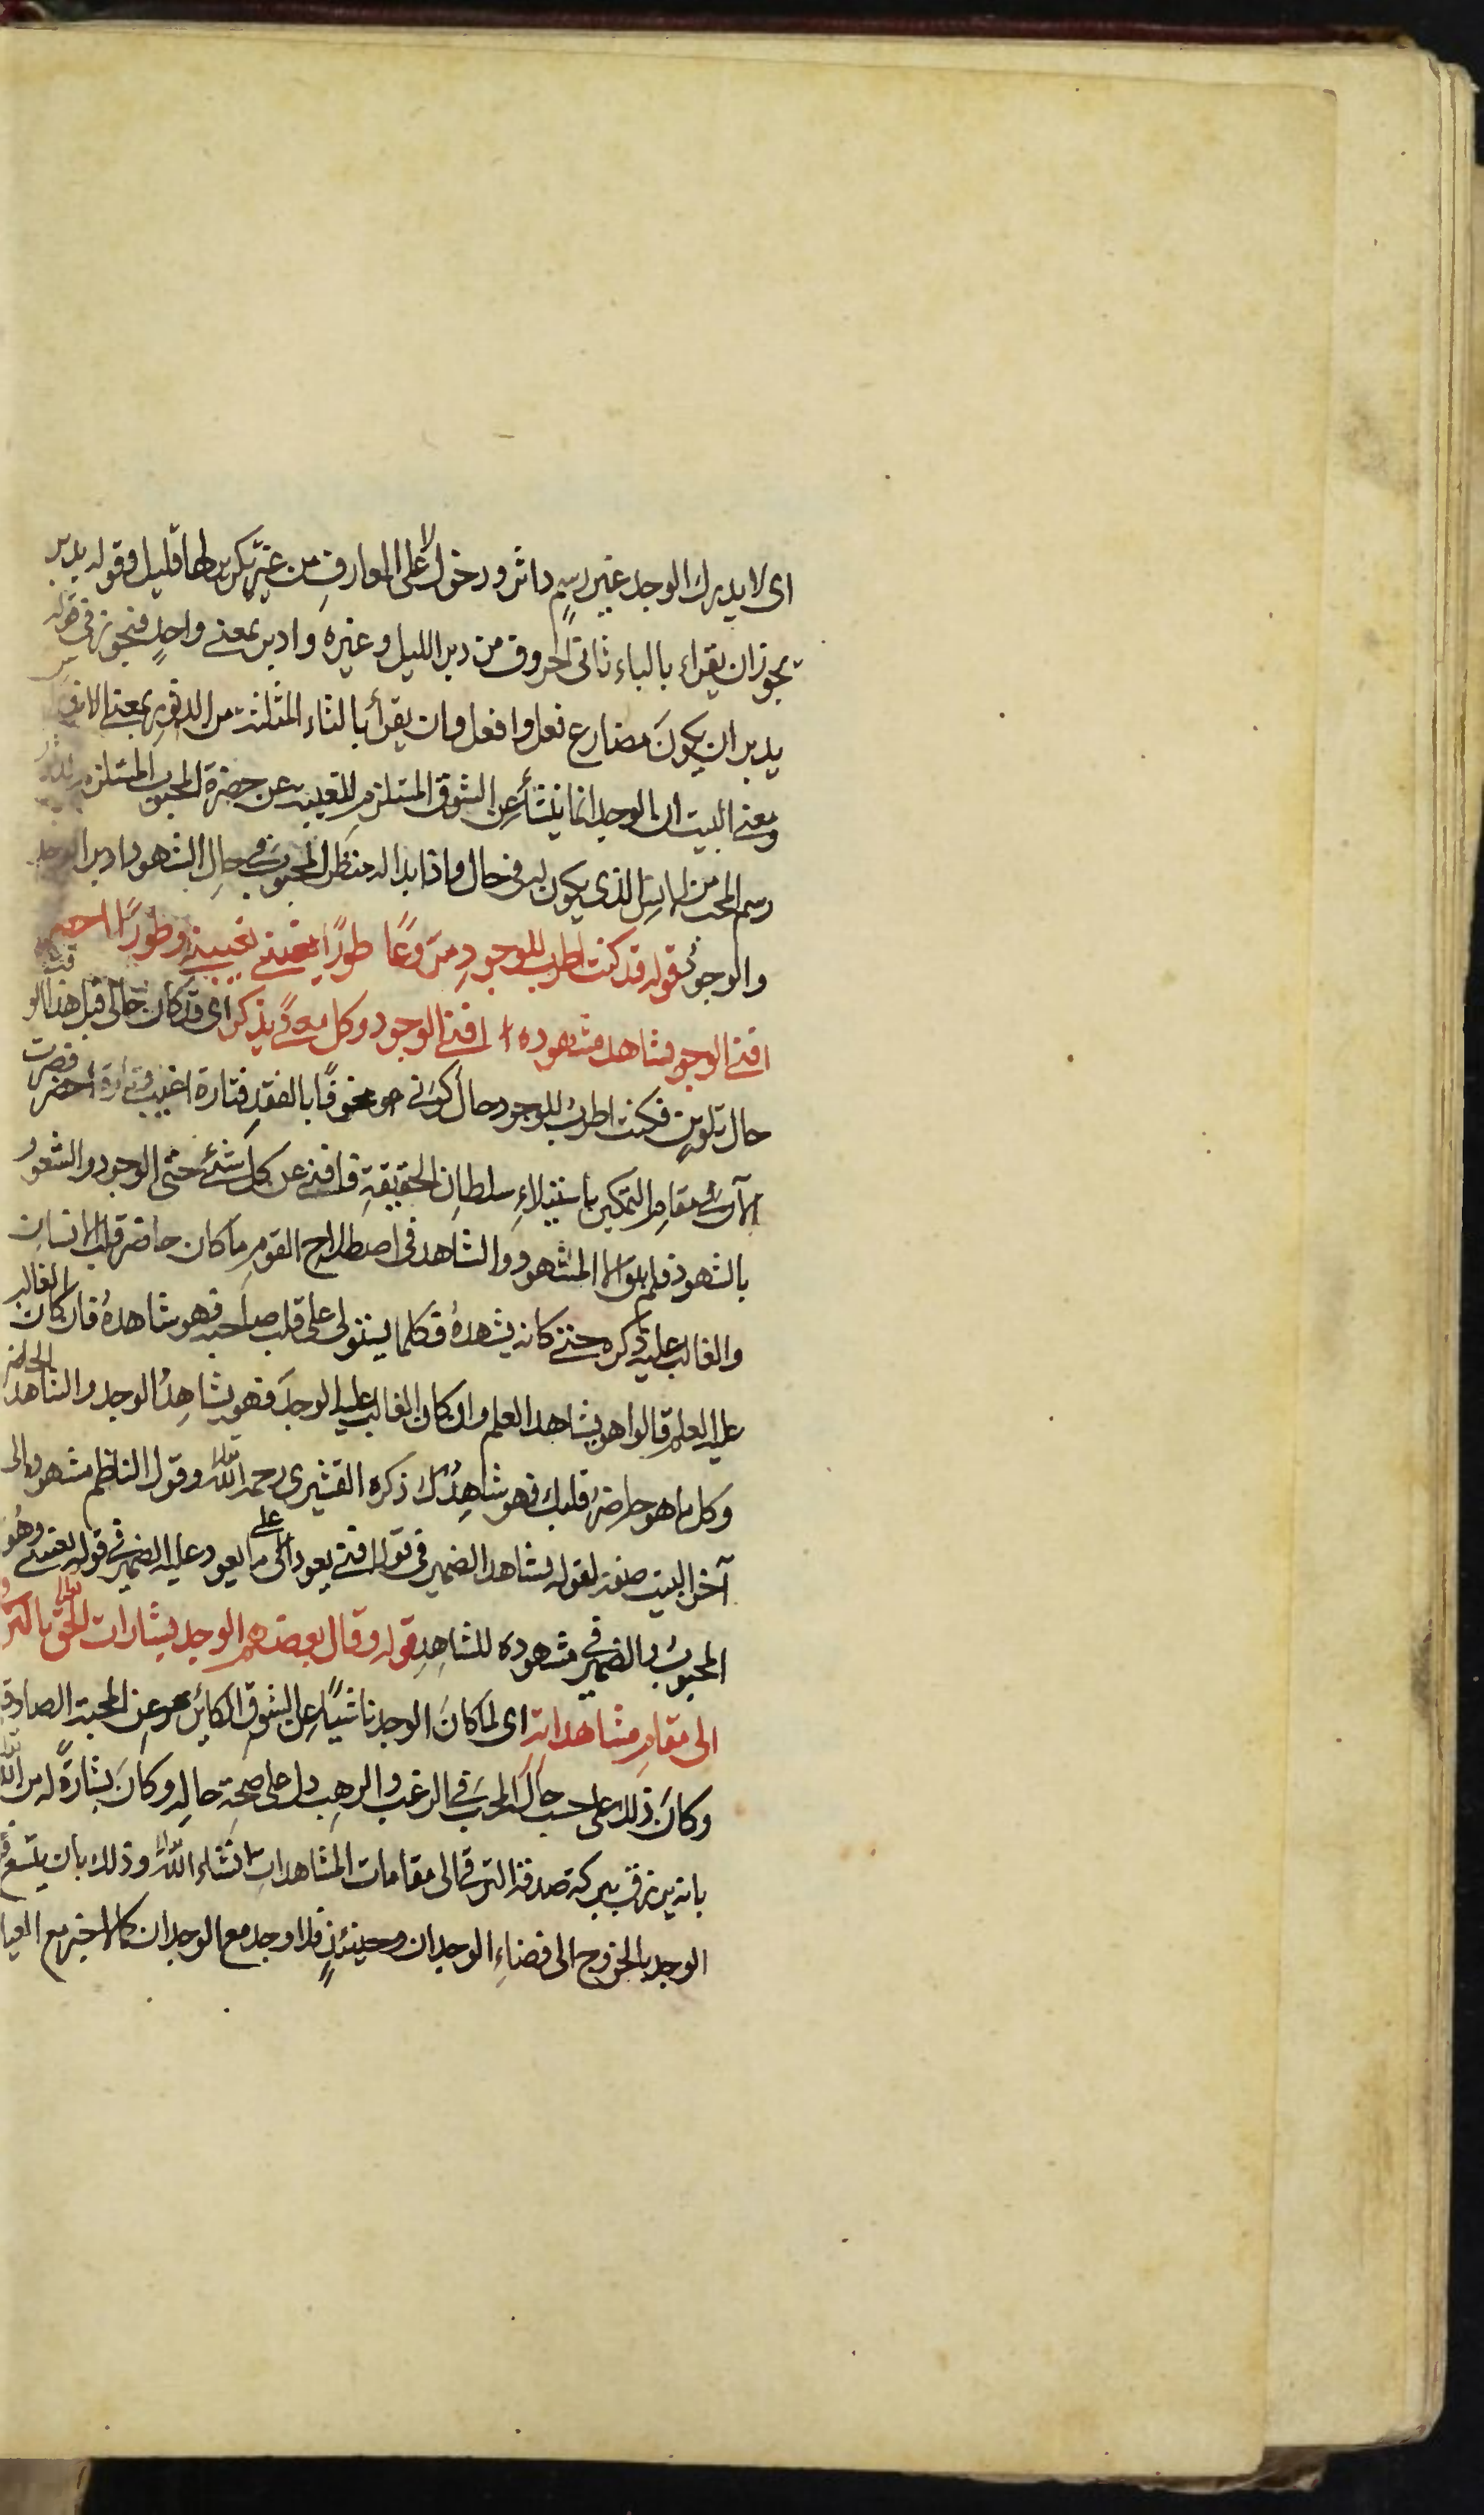 اى لا يدرك الوجد غير رسم داثر ودخول لا على المعارف من غير تكرير لها قليل وقوله يدبر
يجوز ان يقراء بالباء ثانى الحروف من دبر الليل وغيره وادبر بمعنى واحد فيجوز فى قوله
يدبر ان يكون مضارع فعل وافعل وان يقرأ بالثاء المثلثة من الدثور بمعنى
ومعنى البيت ان الوجد انما ينشأ عن الشوق المستلزم للتغيب عن حضرة المحبوب المستلزم
رسم المحب من الذى يكون له فى حال واذا بدا له منظر المحبوب فى حال الشهود ادبر الوجد
والوجود قوله قد كنت اطرب للوجود مروعا طورا يغيبنى تغيبه وطورا
افنى الوجود شاهد مشهوده افنى الوجود وكل معنى يذكر اى قد كان حالى قبل هذا
حال تلوين فكنت اطرب للوجود حال كونى مخوفا بالفقد فتارة اغيب وتارة احضر فصرت
الآن فى مقام التمكين باستيلاء سلطان الحقيقة فافنى عن كل شئ حتى الوجود والشعور
بالشهود فلم يبق الا المشهود والشاهد فى اصطلاح القوم ما كان حاضر قلب الانسان
والغالب عليه ذكره حتى كانه يشهده فكلما يستولى على قلب صاحبه فهو شاهده فان كان الغالب
عليه العلم قالوا هو يشاهد العلم وان كان الغالب عليه الوجد فهو يشاهد الوجد والشاهد الحاضر
وكل ما هو حاضر قلبك فهو شاهدك ذكره القشيرى رحمه الله تعالى وقول الناظم مشهوده الى
آخر البيت صفة لقوله شاهد الضمير فى قوله افنى يعود الى ما يعود عليه الضمير فى قوله وهو
المحبوب والضمير فى مشهوده للشاهد قوله وقال بعضهم الوجد بشارات الحق تعالى بالترقى
الى مقام مشاهداته اى لما كان الوجد ناشيا عن الشوق الكائن عن المحبة الصادقة
وكان ذلك على حسب حال المحب فى الرغب والرهب دل على صحة حاله وكان بشارة له من الله تعالى
بانه يرزق ببركة صدقه الترقى الى مقامات المشاهدات انشاء الله تعالى وذلك بان يتسع
الوجد بالخروج الى فضاء الوجدان وحينئذ فلا وجد مع الوجدان كالاخبر مع العيان